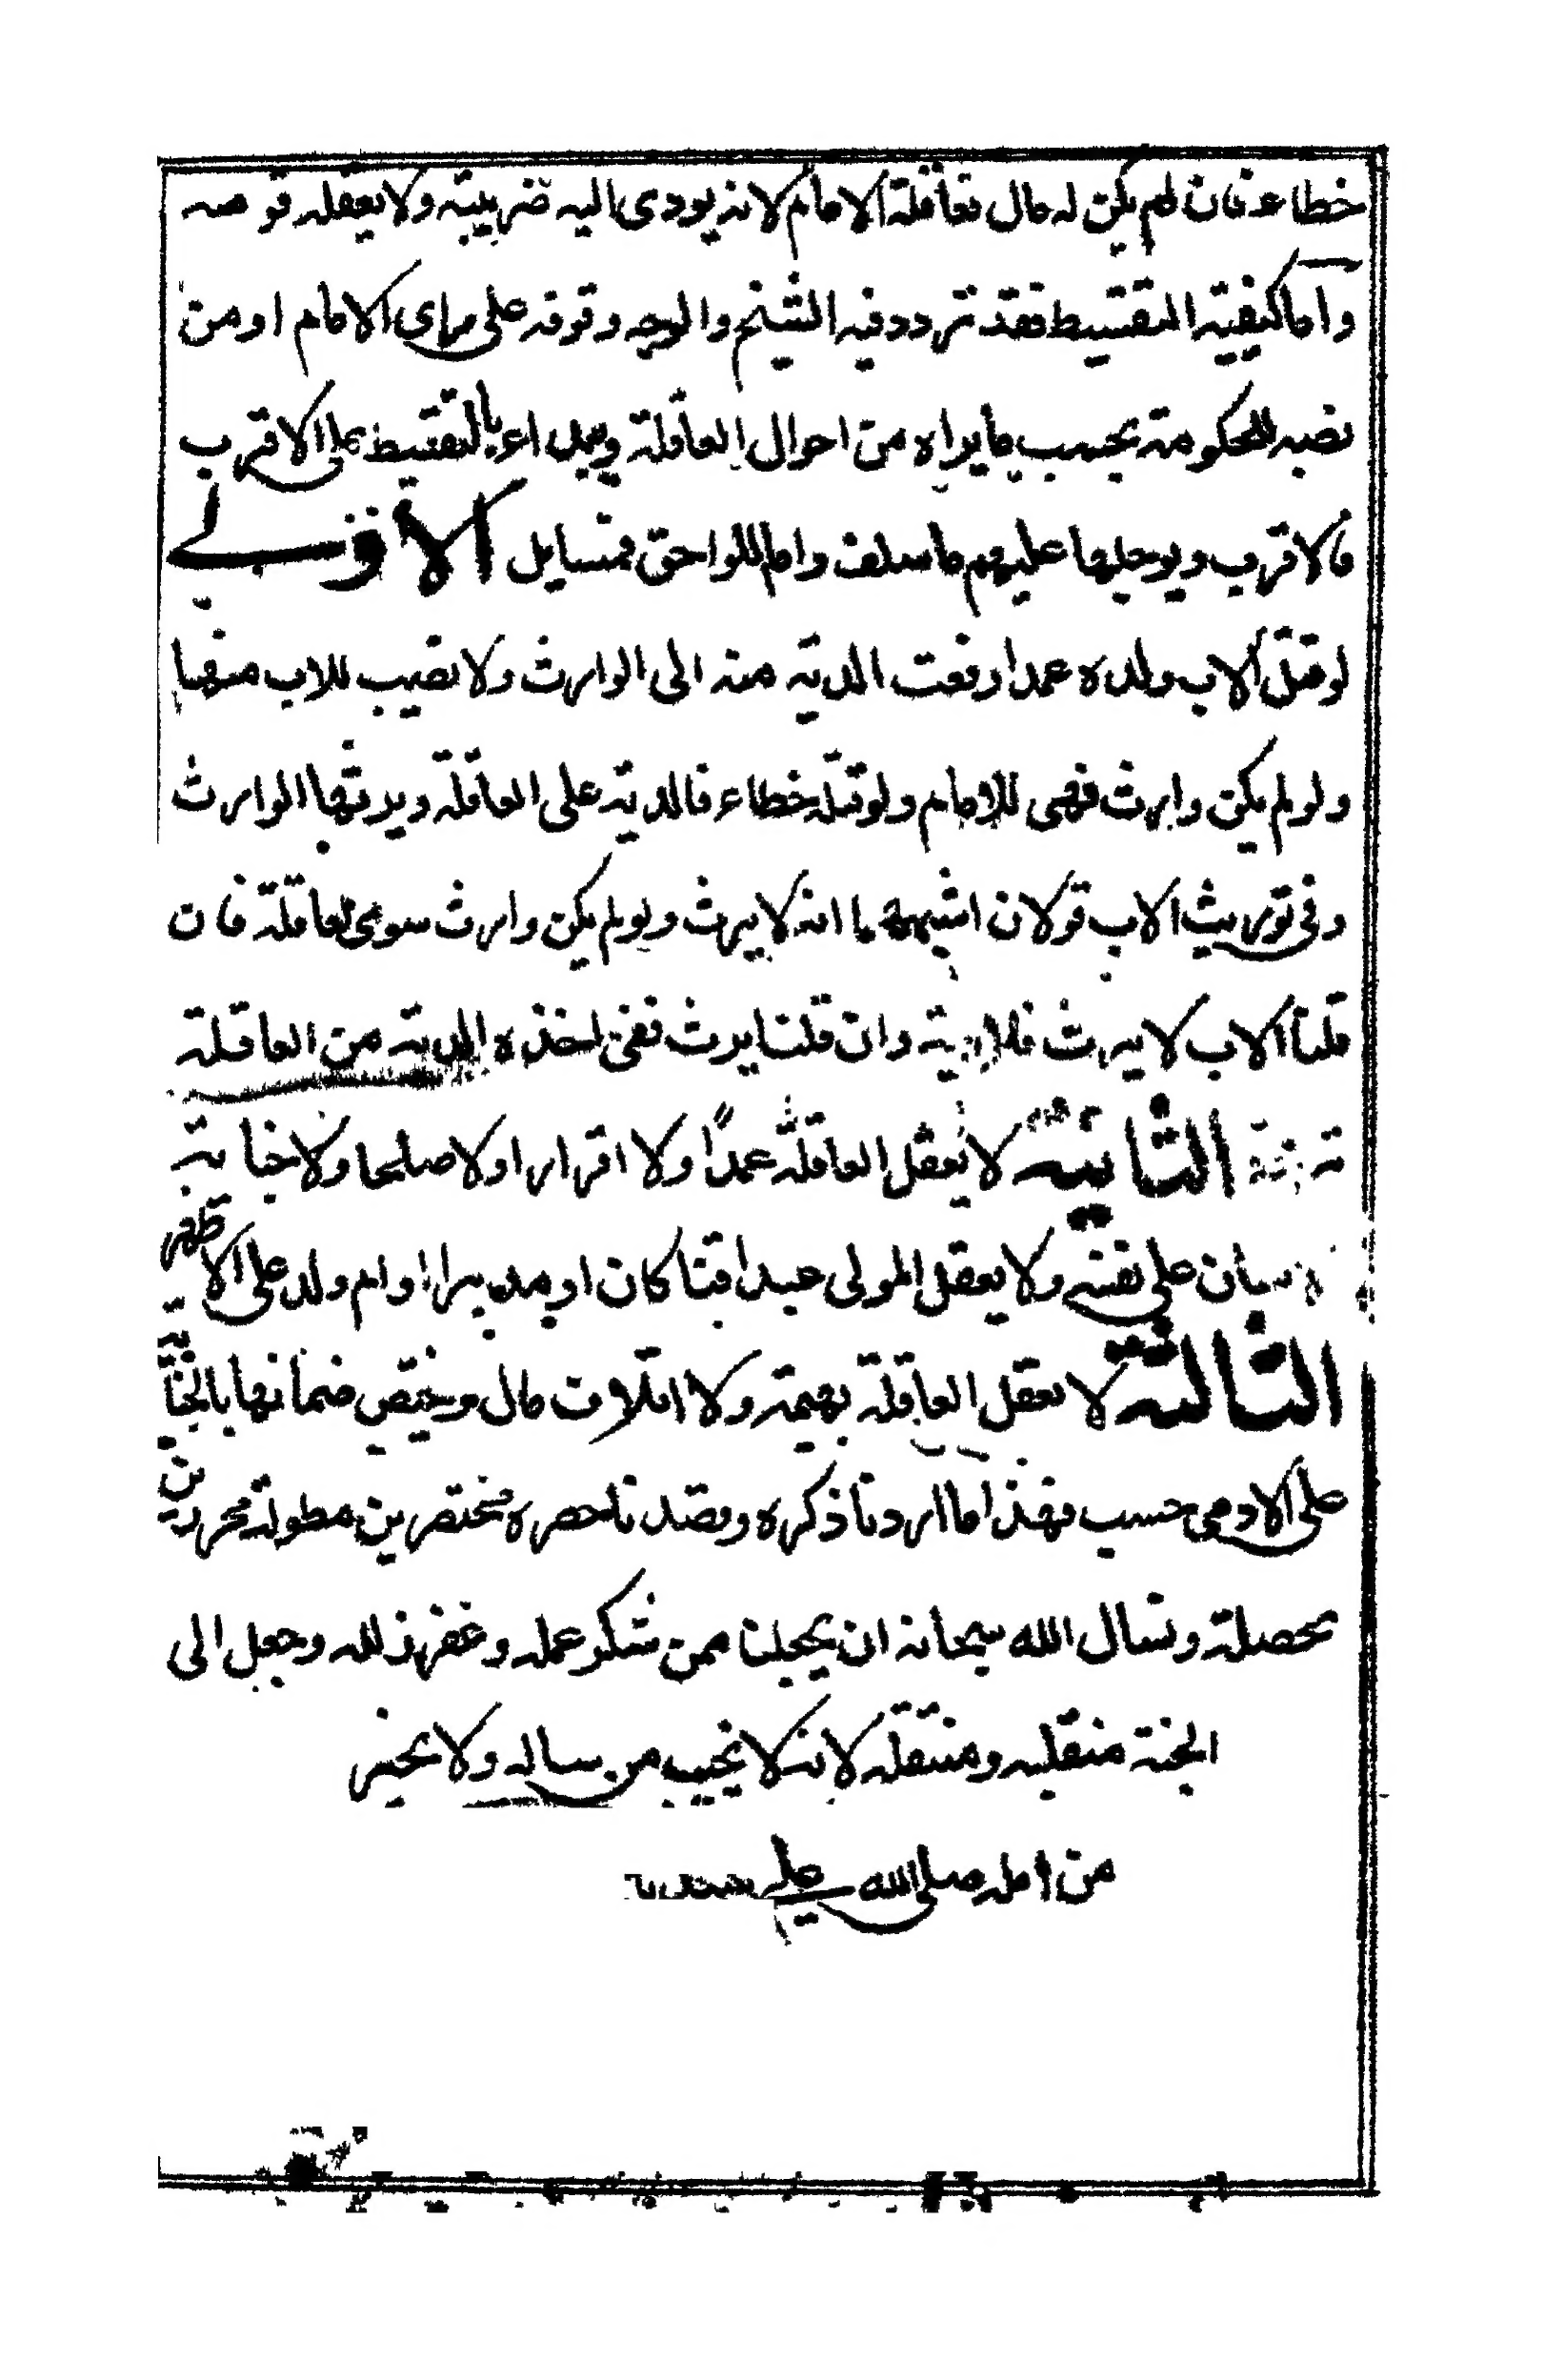 خطاء فان لم يكن له مال فعاقلة الامام لانه يودى اليه ضريبته ولا يعقله قومه
واما كيفية التقسيط فقد تردد فيه الشيخ والوجه وقوفه على راى الامام او من
نصبه للحكومة بحسب ما يراه من احوال العاقلة ويبداء بالتقسيط على الاقرب
فالاقرب ويوجلها عليهم ما سلف واما اللواحق فمسايل الاولى
لو قتل الاب ولده عمدا دفعت الدية منه الى الوارث ولا نصيب للاب منها
ولو لم يكن وارث فهى للامام ولو قتله خطاء فالدية على العاقلة ويرثها الوارث
وفى توريث الاب قولان اشبههما انه لا يرث ولو لم يكن وارث سوى العاقلة فان
قلنا الاب لا يرث فلا دية وان قلنا يرث ففى اخذه الدية من العاقلة
الثانية لا يعقل العاقلة عمدًا ولا اقرارا ولا صلحا ولا جناية
على نفسه ولا يعقل المولى عبدا قنا كان او مدبرا او ام ولد على الاظهر
الثالثة لا تعقل العاقلة بهيمة ولا اتلاف مال ويختص ضمانها بالجناية
على الادمى حسب فهذا ما اردنا ذكره وقصدنا حصره مختصرين مطوله مجردين
محصلة ونسال الله سبحانه ان يجعلنا ممن شكر عمله وغفر زلله وجعل الى
الجنة منقلبه ومنتقله لانه لا يخيب من ساله ولا يخسر
من امله صلى الله عليه